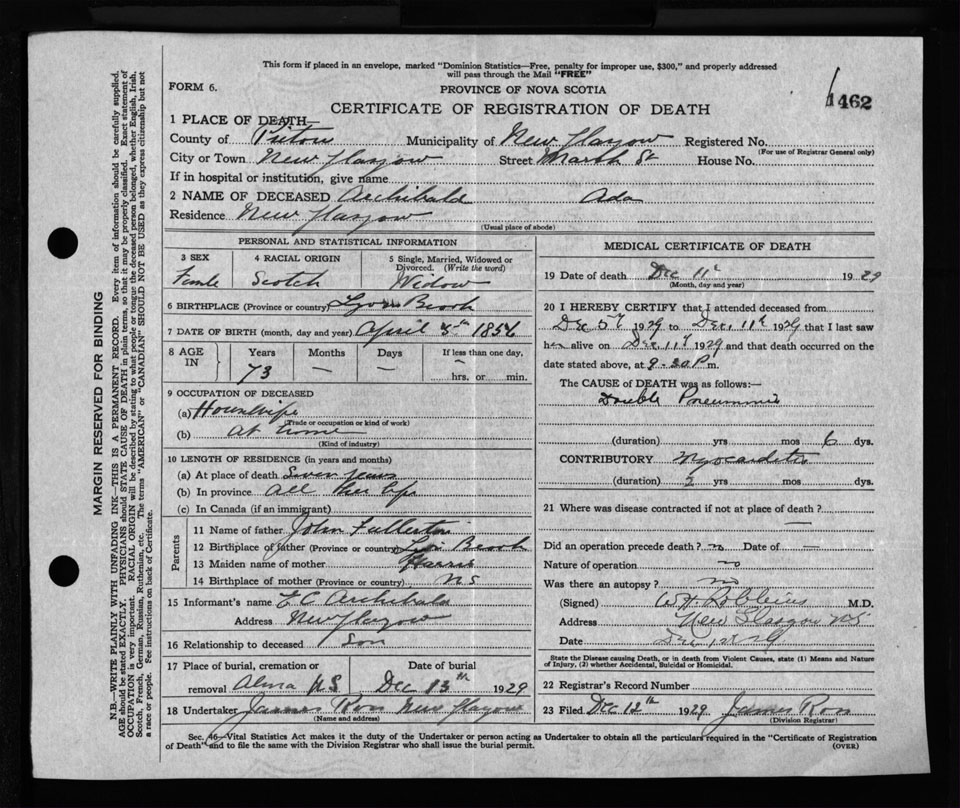 This form if placed in an envelope, marked "Dominion Statistics—Free, penalty for improper use, $300," and properly addressed
will pass through the Mail "FREE"
FORM 6.
PROVINCE OF NOVA SCOTIA
1462
CERTIFICATE OF REGISTRATION OF DEATH
1 PLACE OF DEATH—
County of Pictou Municipality of New Glasgow Registered No.
(For use of Registrar General only)
City or Town New Glasgow Street Marsh St House No.
If in hospital or institution, give name
2 NAME OF DECEASED Archibald Ada
Residence New Glasgow
(Usual place of abode)
PERSONAL AND STATISTICAL INFORMATION
3 SEX 4 RACIAL ORIGIN 5 Single, Married, Widowed or
Divorced. (Write the word)
Female Scotch Widow
6 BIRTHPLACE (Province or country) Lyons Brook
7 DATE OF BIRTH (month, day and year) April 5th 1856
8 AGE IN Years Months Days If less than one day,
73 — — —
hrs. or min.
9 OCCUPATION OF DECEASED
(a) Housewife
(Trade or occupation or kind of work)
(b) At home
(Kind of industry)
10 LENGTH OF RESIDENCE (in years and months)
(a) At place of death Seven years
(b) In province All her life
(c) In Canada (if an immigrant)
Parents
11 Name of father John Fullerton
12 Birthplace of father (Province or country) Lyons Brook
13 Maiden name of mother Harris
14 Birthplace of mother (Province or country) N S
15 Informant's name E C Archibald
Address New Glasgow
16 Relationship to deceased Son
17 Place of burial, cremation or Date of burial
removal Alma N S Dec 13th 1929
18 Undertaker James Ross New Glasgow
(Name and address)
MEDICAL CERTIFICATE OF DEATH
19 Date of death Dec 11th 1929
(Month, day and year)
20 I HEREBY CERTIFY that I attended deceased from
Dec 5th 1929 to Dec. 11th 1929 that I last saw
her alive on Dec 11th 1929 and that death occurred on the
date stated above, at 9.30 P m.
The CAUSE of DEATH was as follows:—
Double Pneumonia
(duration) yrs mos 6 dys.
CONTRIBUTORY Myocarditis
(duration) 2 yrs mos dys.
21 Where was disease contracted if not at place of death?
—
Did an operation precede death? no Date of —
Nature of operation no
Was there an autopsy? no
(Signed) M.D.
Address New Glasgow NS
Date Dec 29
State the Disease causing Death, or in death from Violent Causes, state (1) Means and Nature
of Injury, (2) whether Accidental, Suicidal or Homicidal.
22 Registrar's Record Number
23 Filed Dec 12th 1929 James Ross
(Division Registrar)
Sec. 46—Vital Statistics Act makes it the duty of the Undertaker or person acting as Undertaker to obtain all the particulars required in the "Certificate of Registration
of Death" and to file the same with the Division Registrar who shall issue the burial permit.
(OVER)
MARGIN RESERVED FOR BINDING
N.B.—WRITE PLAINLY WITH UNFADING INK—THIS IS A PERMANENT RECORD. Every item of information should be carefully supplied.
AGE should be stated EXACTLY. PHYSICIANS should STATE CAUSE OF DEATH in plain terms, so that it may be properly classified. Exact statement of
OCCUPATION is very important. RACIAL ORIGIN will be described by stating to what people or tongue the deceased person belonged, whether English, Irish,
Scotch, French, German, Russian, Ruthenian, etc. The terms "AMERICAN" or "CANADIAN" SHOULD NOT BE USED as they express citizenship but not
a race or people. See instructions on back of Certificate.